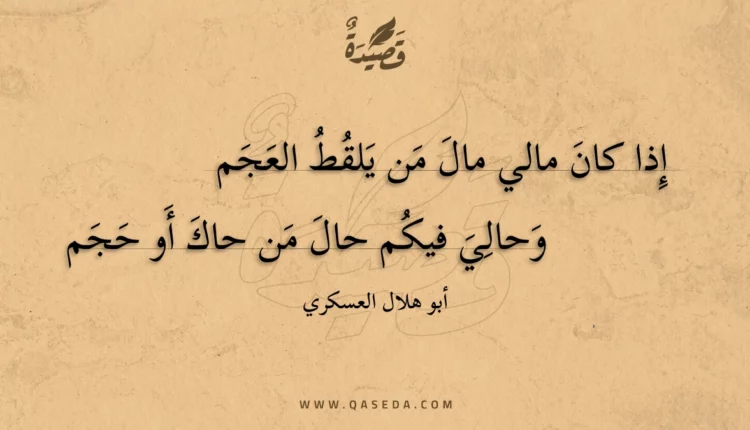 قَصِيْدَةٌ
إِذا كانَ مالي مالَ مَن يَلقُطُ العَجَم
وَحالِيَ فيكُم حالَ مَن حاكَ أَو حَجَم
أبو هلال العسكري
WWW.QASEDA.COM